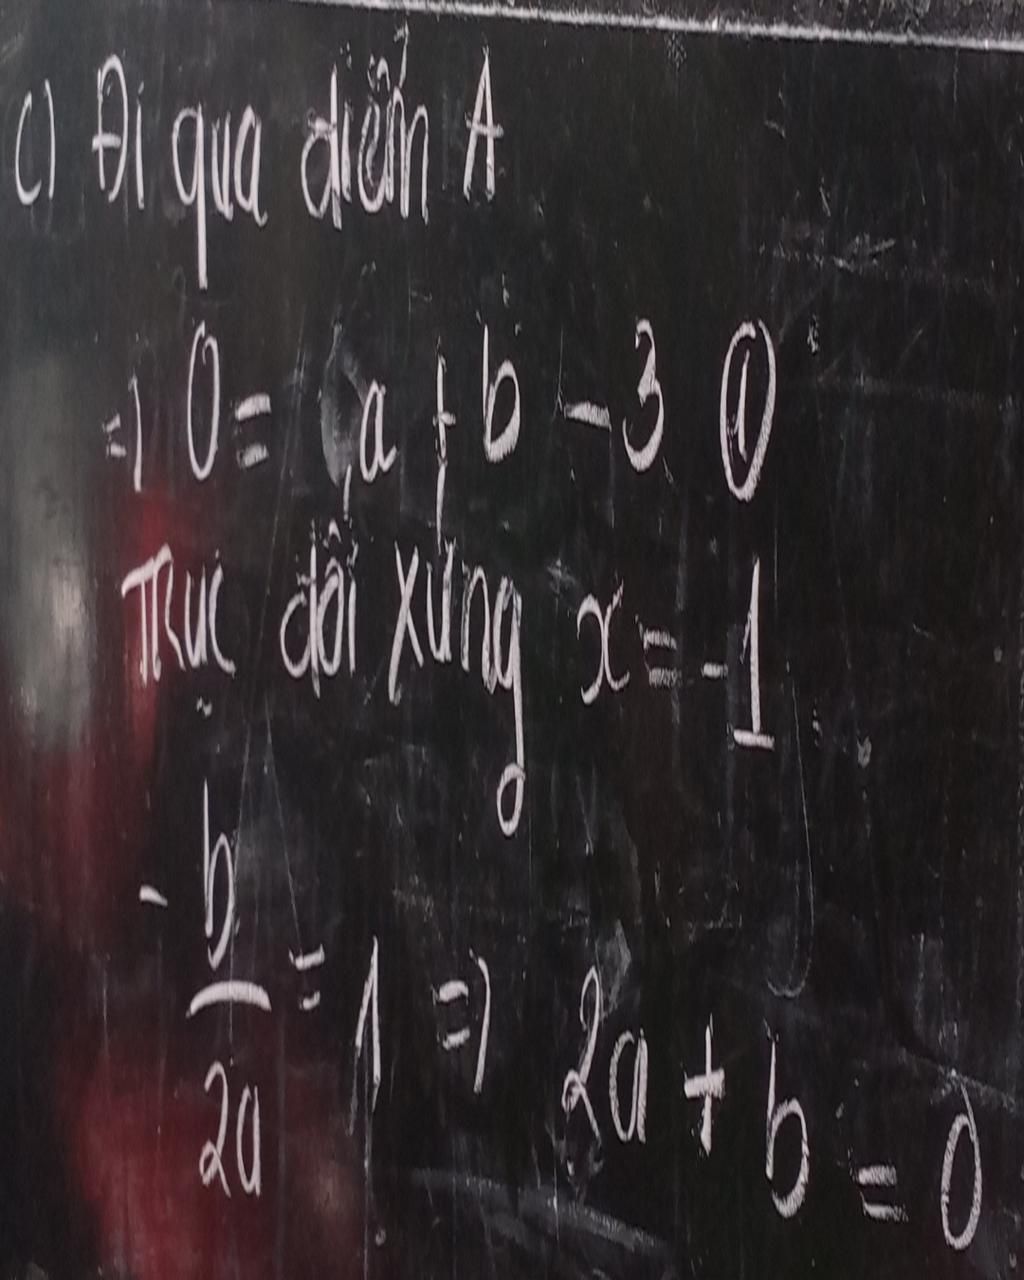 c) Đi qua điểm A
=) 0 = a + b - 3 ①
Trục đối xứng x = -1
- b/2a = 1 =) 2a + b = 0